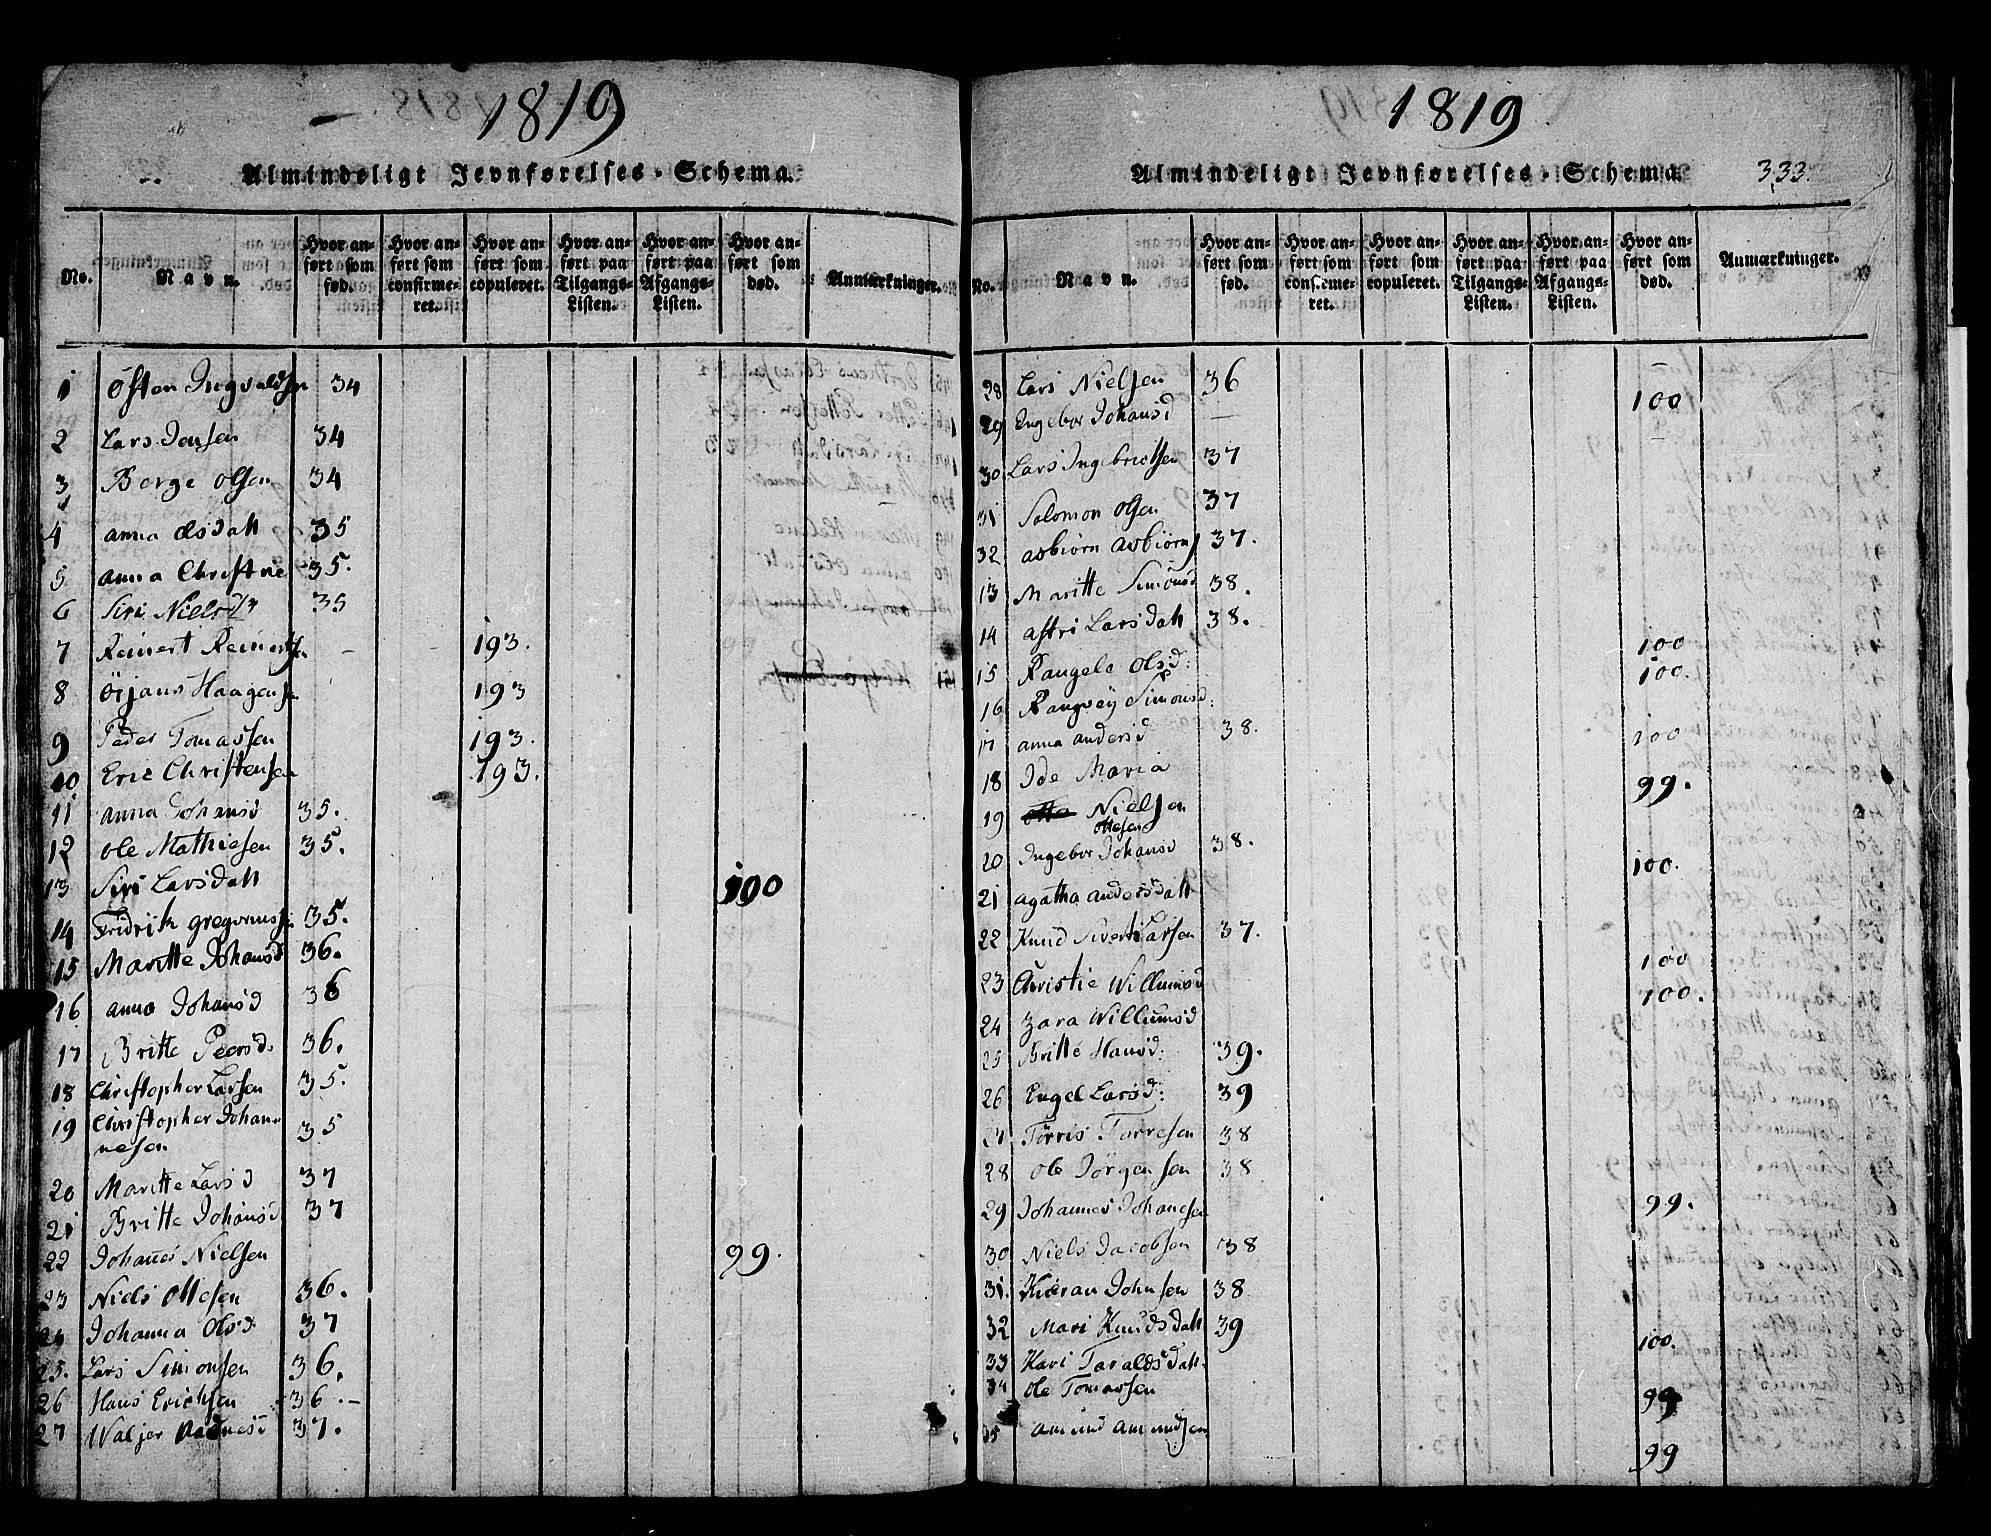 1819
Almindeligt Jevnførelses-Schema.
No. Navn. Hvor anført som fød. Hvor anført som confirmeret. Hvor anført som copuleret. Hvor anført paa Tilgangs-Listen. Hvor anført paa Afgangs-Listen. Hvor anført som død. Anmærkninger.
1 Østen Ingvaldsen 34
2 Lars Jensen 34
3 Børge Olsen 34
4 anna olsdatt 35
5 anna Christne 35.
6 Siri Nielsdr 35
7 Reinert Reinerts. 193.
8 Örjans Haagensen 193
9 Peder Tomassen 193.
10 Eric Christensen 193.
11 anna Johansd 35.
12 ole Mathiesen 35.
13 Siri Larsdatt 100
14 Fridrik gregoriuss. 35.
15 Maritte Johansd 36.
16 anna Johansd 36
17 Britte Peersd. 36.
18 Christopher Larsen 35.
19 Christopher Johan-
nesen 35
20 Maritte Larsd 37
21 Britte Johansd 37
22 Johanes Nielsen 99.
23 Niels Ottesen 36.
24 Johanna Olsd 37
25. Lars Simonsen 36.
26 Hans Erichsen 36.-
27 37.
1819.
Almindeligt Jevnførelses-Schema. 333.
No. Navn. Hvor anført som fød. Hvor anført som confirmeret. Hvor anført som copuleret. Hvor anført paa Tilgangs-Listen. Hvor anført paa Afgangs-Listen. Hvor anført som død. Anmærkninger.
28 Lars Nielsen 36
29 Engebor Johansd 100
30 Lars Ingebrictsen 37
31 Solomon Olsen 37
32 asbiørn asbiørns 37.
13 Maritte Simonsd 38.
14 astri Larsdatt 38.
15 Rangele Olsd: 100
16 Rangvey Simonsd: 100.
17 anna andersd 38.
18 Ide Maria 100
19 otto Nielsen 99.
ottesen
20 Ingebor Johansd 38.
21 agatha andersdatt 100.
22 Knud Sivert Larsen 37.
23 Christie Willumsd 100
24 Zara Willumsd 100.
25 Britte Hansd: 39.
26 Engel Larsd: 39
27 Törris Torresen 38
28 ole Jörgensen 38
29 Johannes Johanesen 99.
30 Niels Jacobsen 38
31. Johnsen 38
32 Mari Knudsdatt 39
33 Kari Taraldsdatt. 100.
34 ole Tomassen 99
35 amund amundsen 99